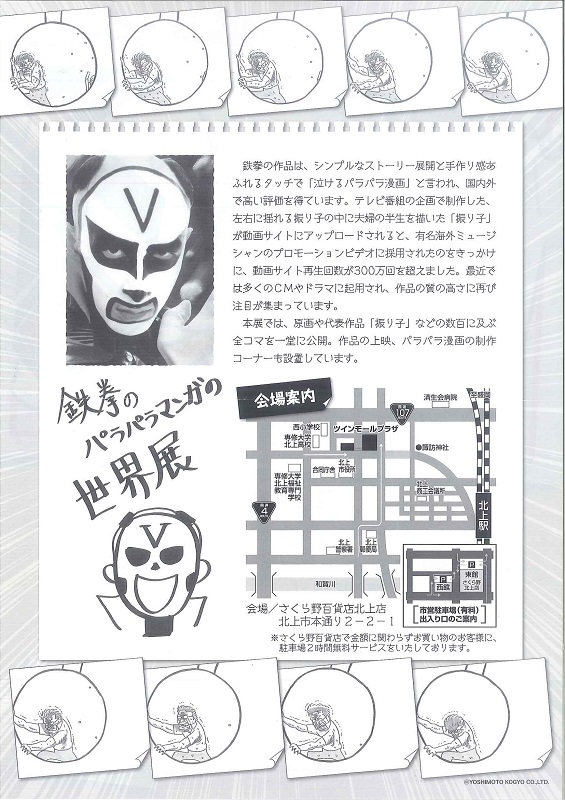 鉄拳の作品は、シンプルなストーリー展開と手作り感あ
ふれるタッチで「泣けるパラパラ漫画」と言われ、国内外
で高い評価を得ています。テレビ番組の企画で制作した、
左右に揺れる振り子の中に夫婦の半生を描いた「振り子」
が動画サイトにアップロードされると、有名海外ミュージ
シャンのプロモーションビデオに採用されたのをきっかけ
に、動画サイト再生回数が300万回を超えました。最近で
は多くのCMやドラマに起用され、作品の質の高さに再び
注目が集まっています。
本展では、原画や代表作品「振り子」などの数百に及ぶ
全コマを一堂に公開。作品の上映、パラパラ漫画の制作
コーナーも設置しています。
鉄拳の
パラパラマンガの
世界展
会場案内
国道
107
済生会病院
至盛岡
西小学校
ツインモールプラザ
専修大学
北上高校
諏訪神社
合同庁舎
北上
市役所
専修大学
北上福祉
教育専門
学校
北上
商工会議所
国道
4
北上駅
北上
警察署
北上
郵便局
和賀川
P
西館
P
東館
さくら野
北上店
市営駐車場(有料)
出入り口のご案内
会場/さくら野百貨店北上店
北上市本通り2-2-1
※さくら野百貨店で金額に関わらずお買い物のお客様に、
駐車場2時間無料サービスをいたしております。
©YOSHIMOTO KOGYO CO.,LTD.